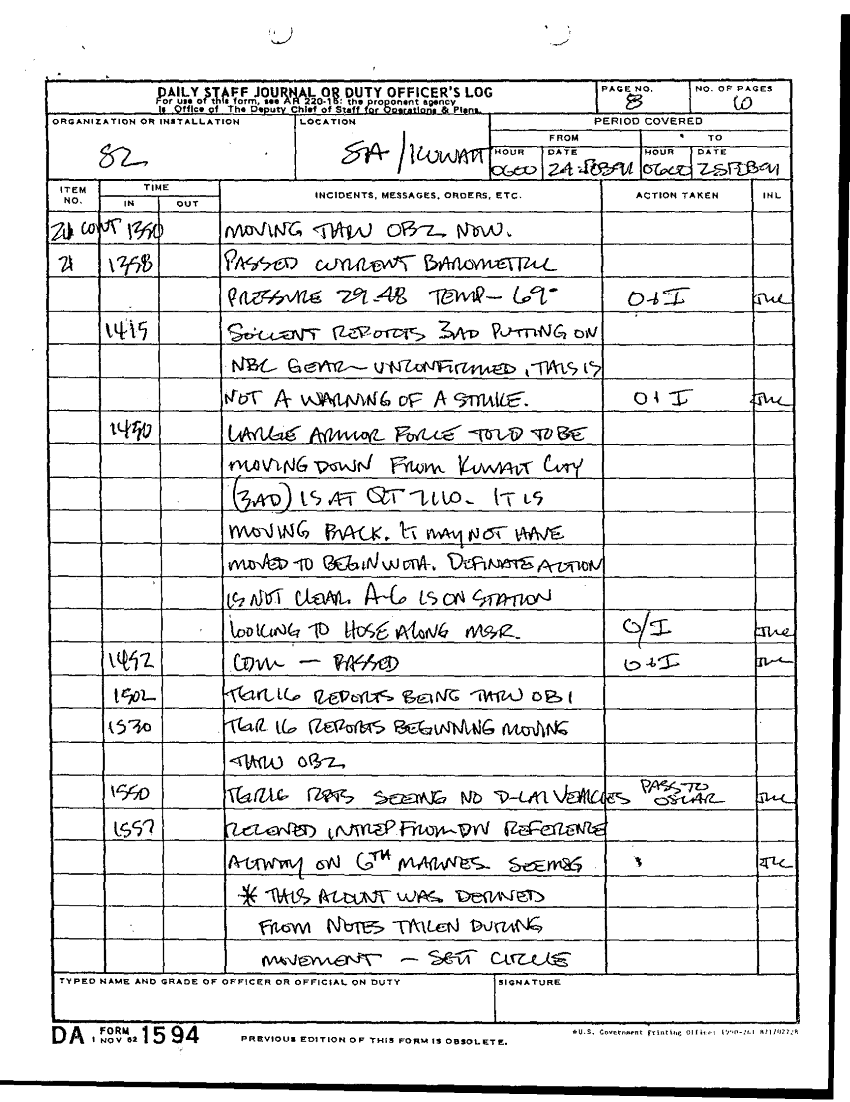 DAILY STAFF JOURNAL OR DUTY OFFICER'S LOG
For use of this form, see AR 220-15; the proponent agency
is Office of The Deputy Chief of Staff for Operations & Plans.
PAGE NO.
8
NO. OF PAGES
10
ORGANIZATION OR INSTALLATION
LOCATION
PERIOD COVERED
82
SA/KUWAIT
FROM
TO
HOUR
DATE
HOUR
DATE
0600
24 FEB 91
0600
25 FEB 91
ITEM NO.
TIME
IN
OUT
INCIDENTS, MESSAGES, ORDERS, ETC.
ACTION TAKEN
INL
CONT 1350 MOVING THRU OB2 NOW.
21 1358 PASSED CURRENT BAROMETRIC
PRESSURE 29.48 TEMP - 69° O+I
1415 REPORTS 3AD PUTTING ON
NBC GEAR - UNCONFIRMED, THIS IS
NOT A WARNING OF A STRIKE. O+I
1450 LARGE ARMOR FORCE TOLD TO BE
MOVING DOWN FROM KUWAIT CITY
(3AD) IS AT QT 7110. IT IS
MOVING BACK. IT MAY NOT HAVE
MOVED TO BEGIN W/ DEFINATE ACTION
IS NOT CLEAR. A-6 IS ON STATION
LOOKING TO HOSE ALONG MSR. O/I
1452 COM - PASSED O+I
1502 TGR 16 REPORTS BEING THRU OB1
1530 TGR 16 REPORTS BEGINNING MOVING
THRU OB2
1550 TGR16 RPTS SEEING NO VEHICLES PASS TO OSCAR
1557 RECEIVED INTREP FROM DIV REFERENCE
ACTIVITY ON 6TH MARINES.
* THIS ACOUNT WAS DERIVED
FROM NOTES TAKEN DURING
MOVEMENT - CIRCLE
TYPED NAME AND GRADE OF OFFICER OR OFFICIAL ON DUTY
SIGNATURE
DA FORM 1 NOV 62 1594
PREVIOUS EDITION OF THIS FORM IS OBSOLETE.
*U.S. Government Printing Office: